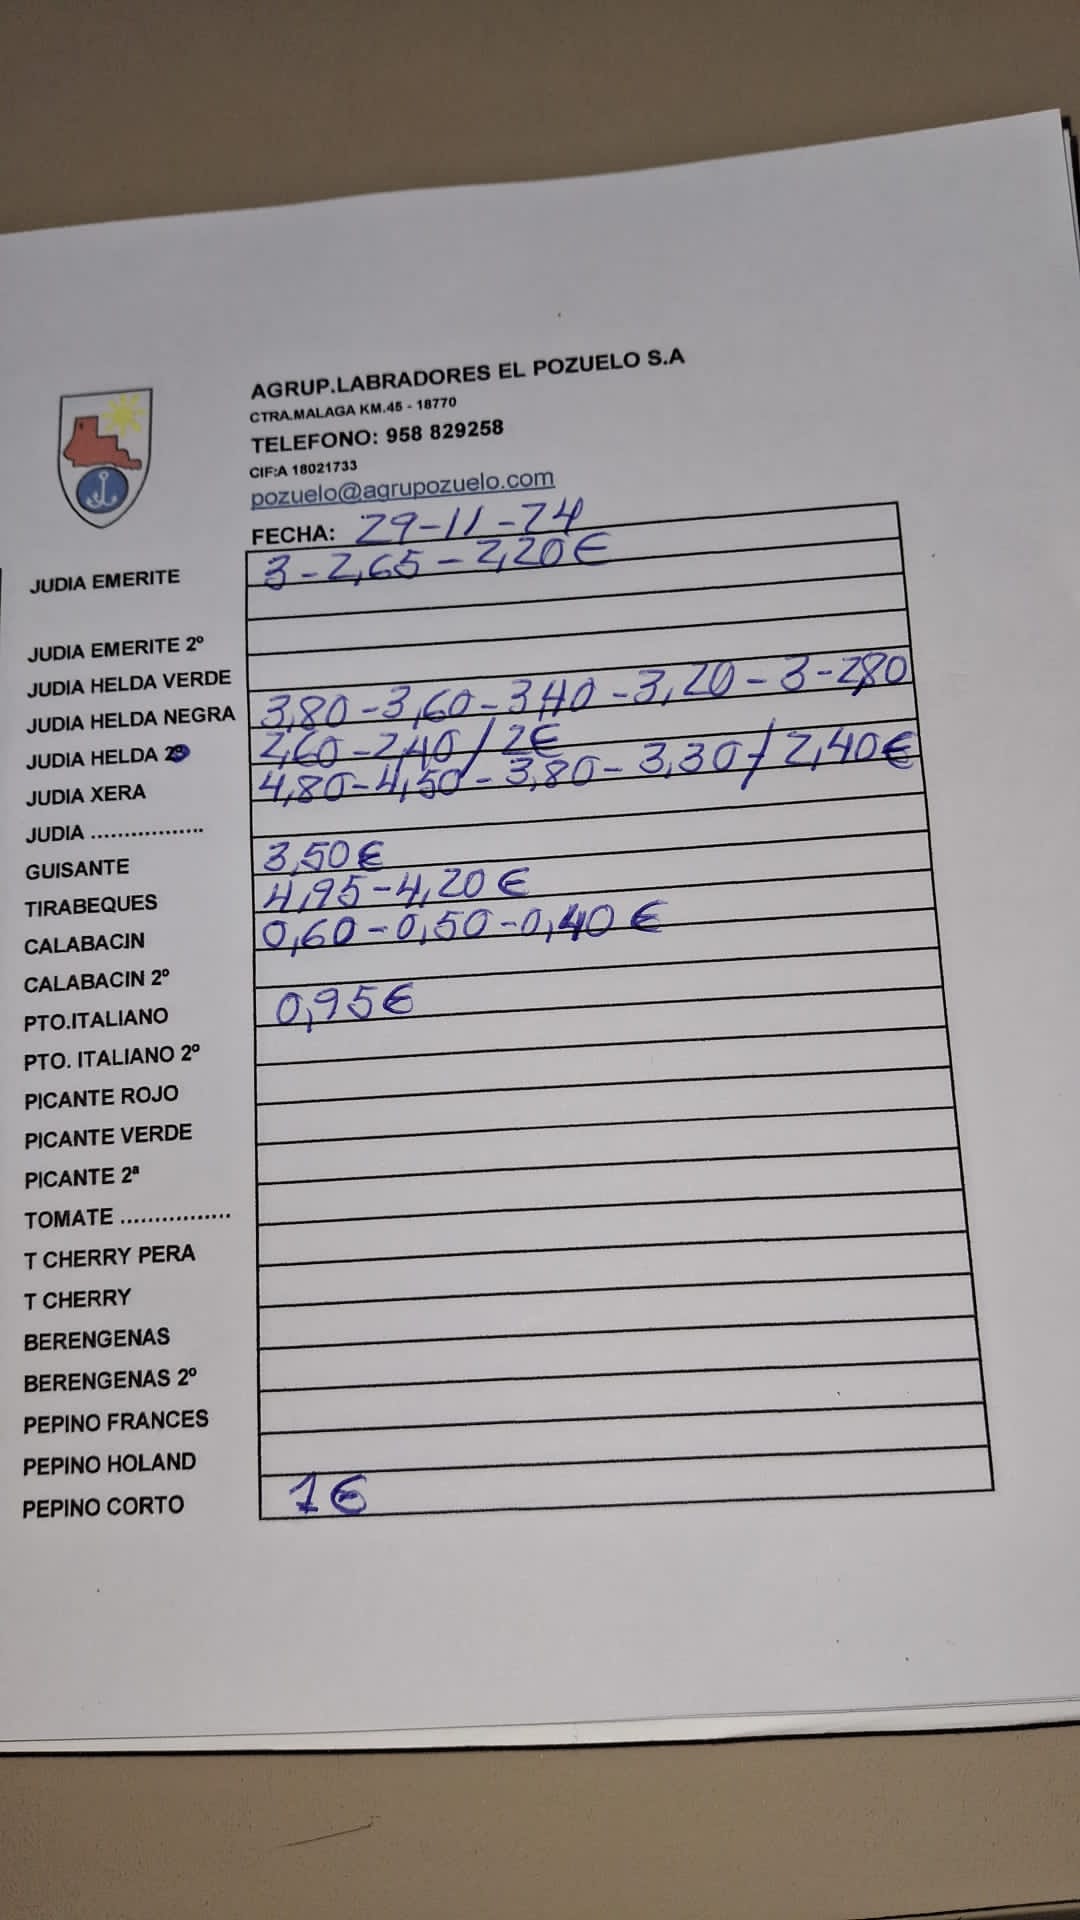 AGRUP.LABRADORES EL POZUELO S.A
CTRA.MALAGA KM.45 - 18770
TELEFONO: 958 829258
CIF:A 18021733
pozuelo@agrupozuelo.com
FECHA: 29-11-24
JUDIA EMERITE 3-2,65-2,20€
JUDIA EMERITE 2º
JUDIA HELDA VERDE
JUDIA HELDA NEGRA 3,80-3,60-3,40-3,20-3-2,80
JUDIA HELDA 2,60-2,40/2€
JUDIA XERA 4,80-4,50-3,80-3,30/2,40€
JUDIA .................
GUISANTE 3,50€
TIRABEQUES 4,95-4,20€
CALABACIN 0,60-0,50-0,40€
CALABACIN 2º
PTO.ITALIANO 0,95€
PTO. ITALIANO 2º
PICANTE ROJO
PICANTE VERDE
PICANTE 2ª
TOMATE ................
T CHERRY PERA
T CHERRY
BERENGENAS
BERENGENAS 2º
PEPINO FRANCES
PEPINO HOLAND
PEPINO CORTO 1€